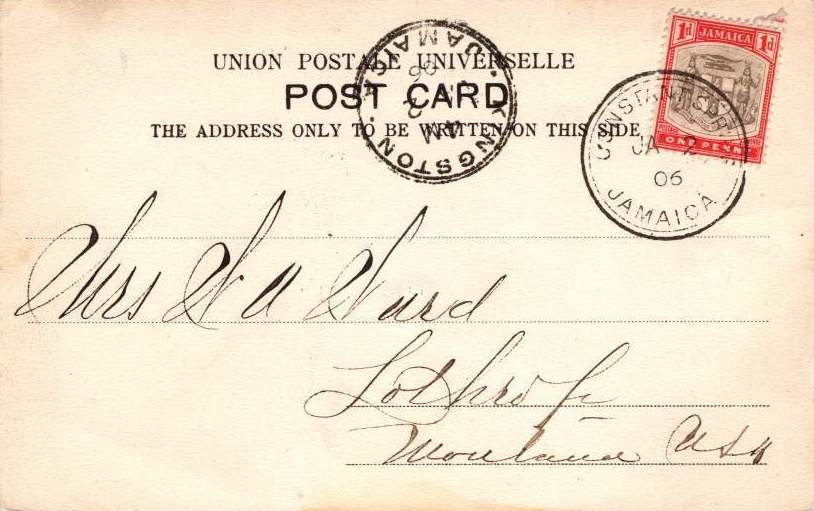 UNION POSTALE UNIVERSELLE
POST CARD
THE ADDRESS ONLY TO BE WRITTEN ON THIS SIDE
KINGSTON · JAMAICA
JA 2
06
1d JAMAICA 1d
ONE PENNY
CONSTANT SPRING
JA 2
06
JAMAICA
Mrs W A Ward
Lothrop
Montana USA